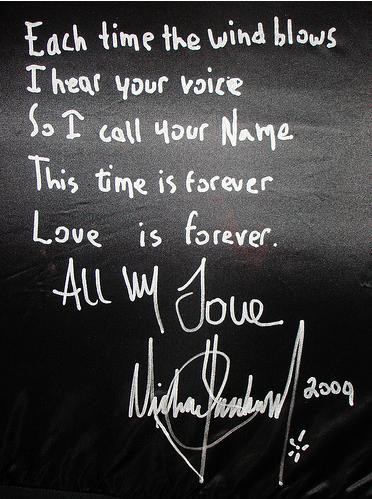 Each time the wind blows
I hear your voice
So I call your Name
This time is forever
Love is forever.
All My Love
Michael Jackson 2009